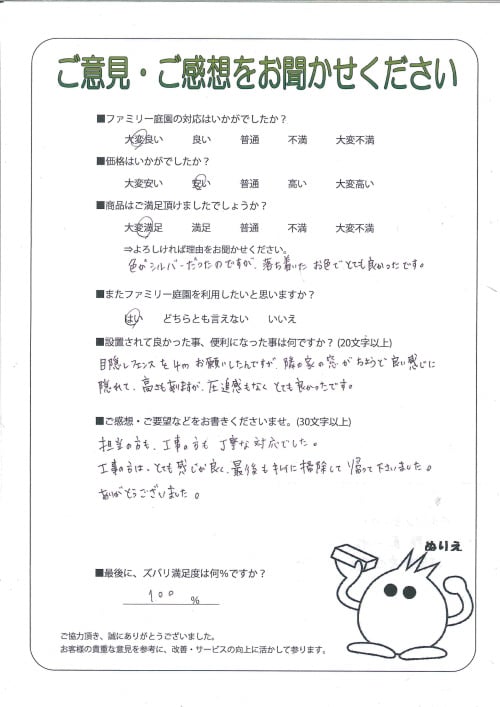 ご意見・ご感想をお聞かせください
■ファミリー庭園の対応はいかがでしたか？
大変良い 良い 普通 不満 大変不満
■価格はいかがでしたか？
大変安い 安い 普通 高い 大変高い
■商品はご満足頂けましたでしょうか？
大変満足 満足 普通 不満 大変不満
⇒よろしければ理由をお聞かせください。
色がシルバーだったのですが、落ち着いたお色でとても良かったです。
■またファミリー庭園を利用したいと思いますか？
はい どちらとも言えない いいえ
■設置されて良かった事、便利になった事は何ですか？(20文字以上)
目隠しフェンスを4mお願いしたんですが、隣の家の窓がちょうど良い感じに
隠れて、高さも有りますが、圧迫感もなくとても良かったです。
■ご感想・ご要望などをお書きくださいませ。(30文字以上)
担当の方も、工事の方も丁寧な対応でした。
工事の方は、とても感じが良く、最後もキレイに掃除して帰って下さいました。
ありがとうございました。
ぬりえ
■最後に、ズバリ満足度は何%ですか？
100 %
ご協力頂き、誠にありがとうございました。
お客様の貴重な意見を参考に、改善・サービスの向上に活かして参ります。